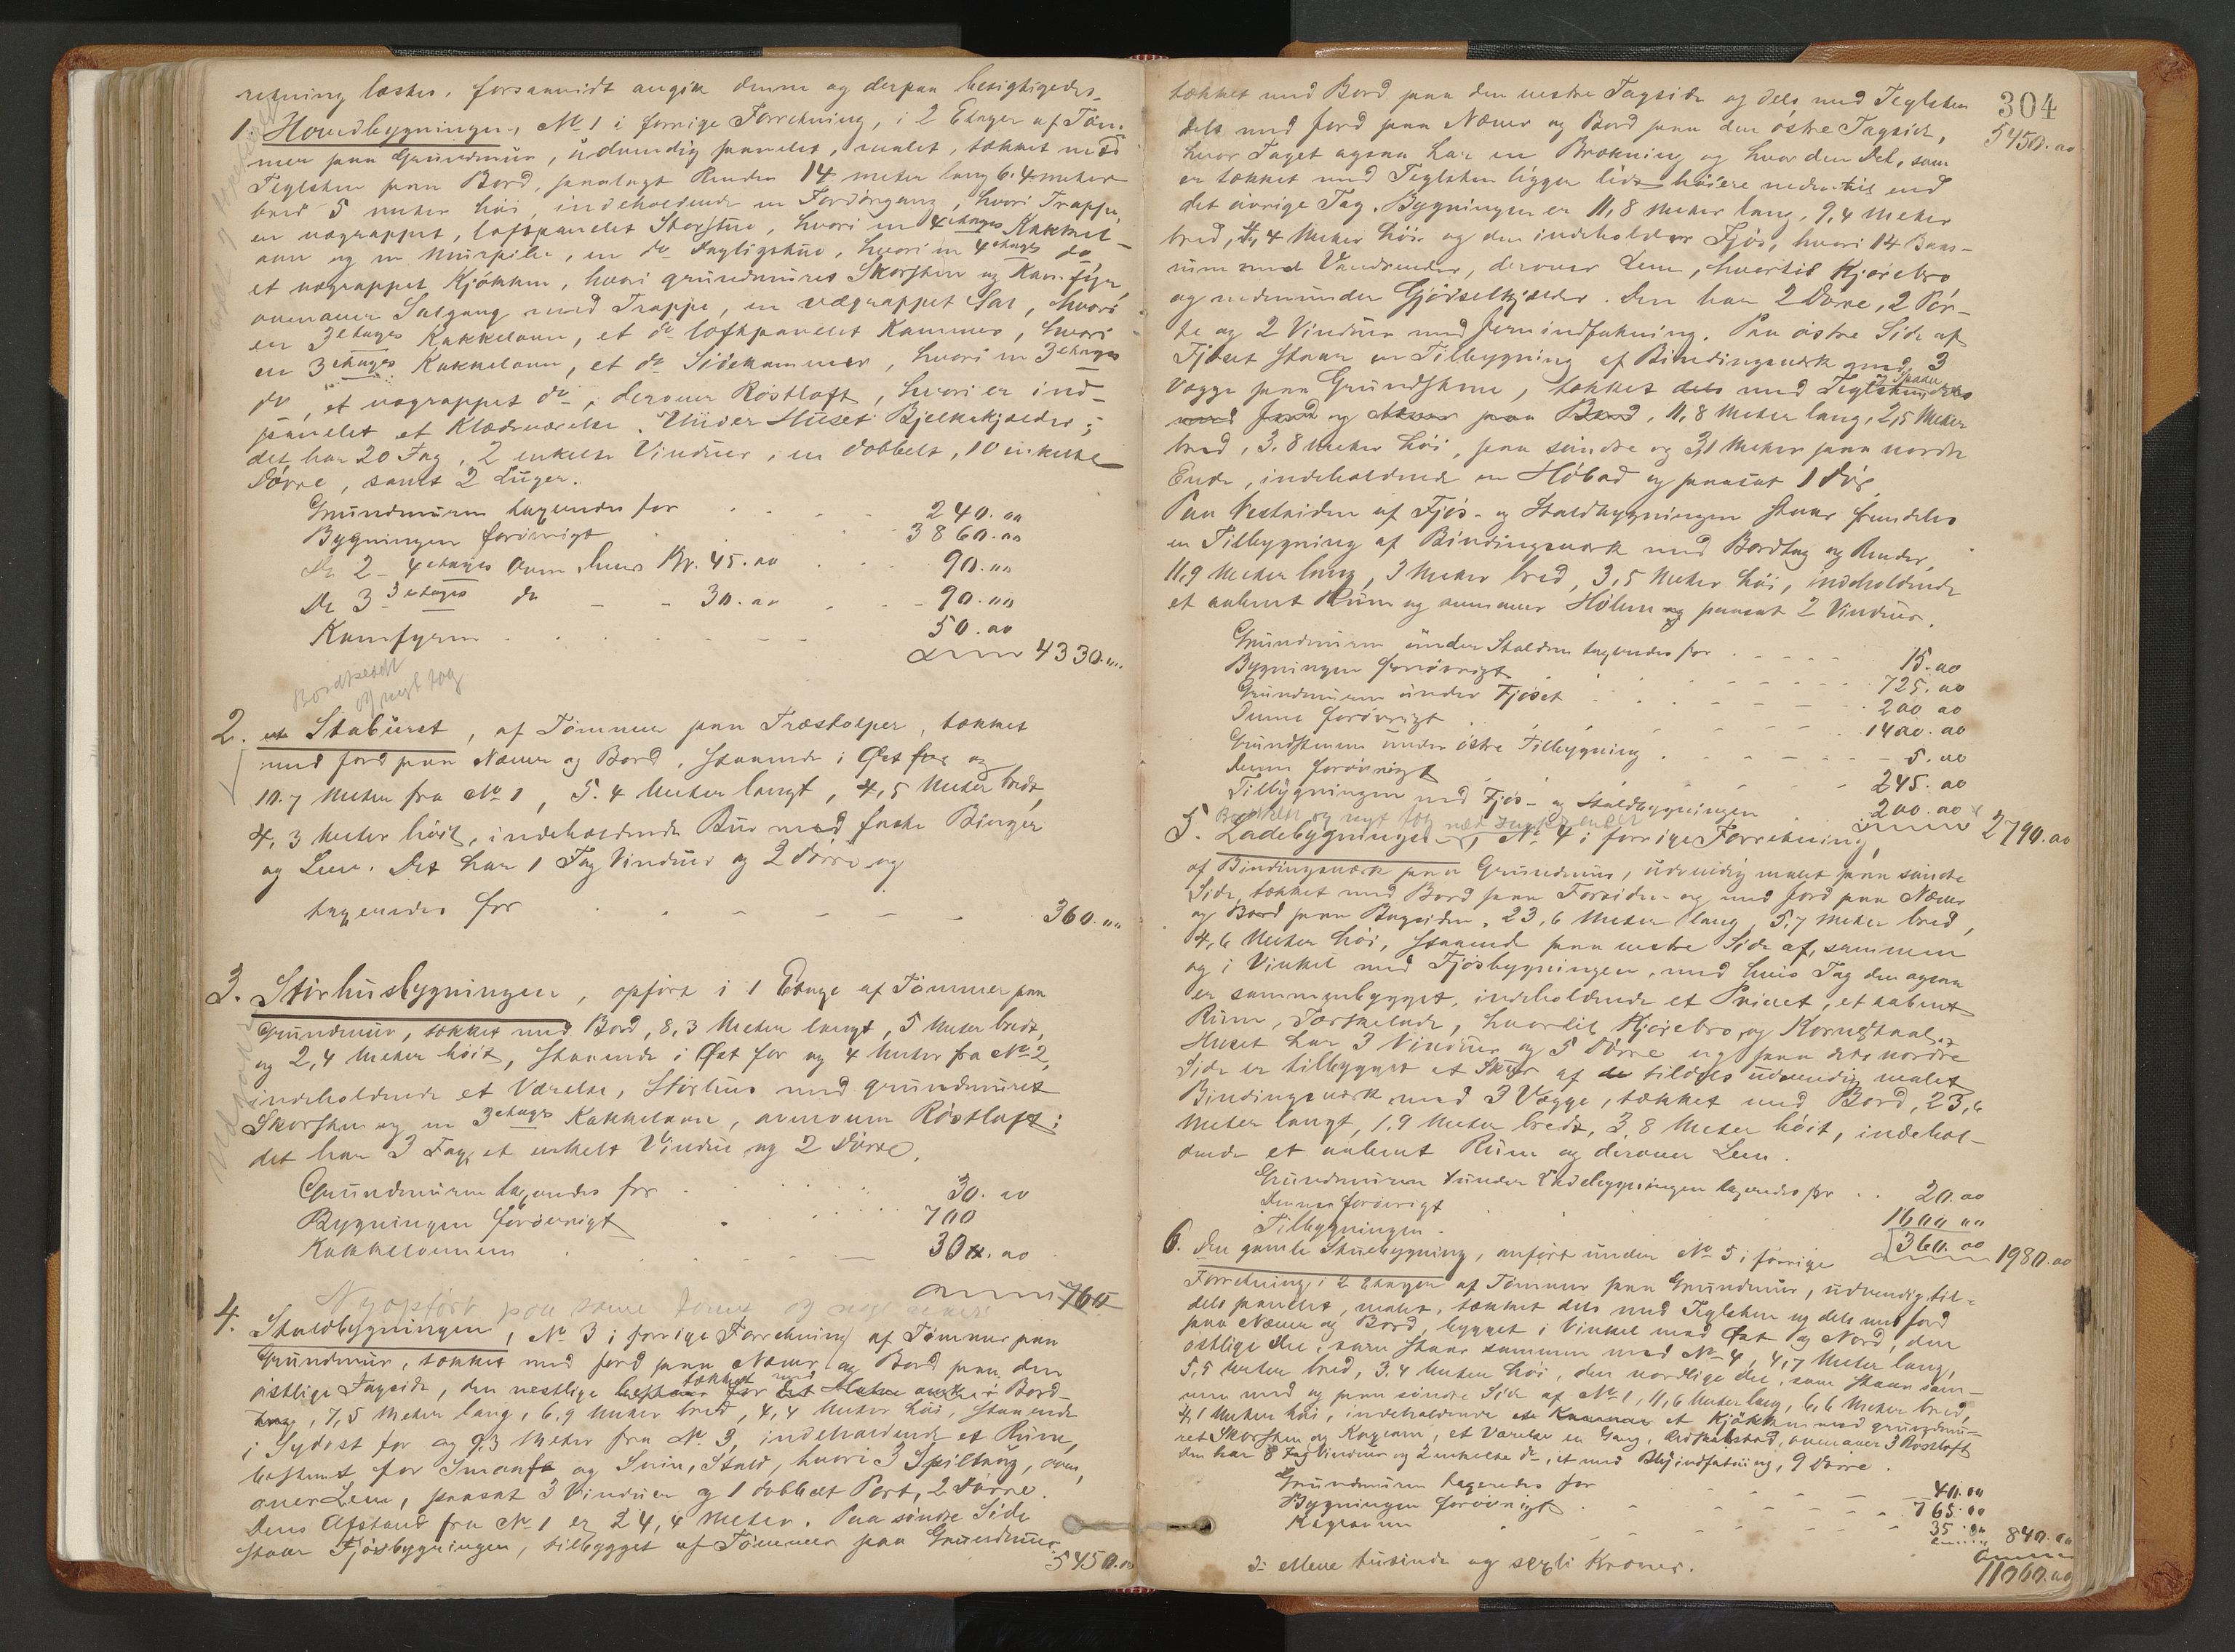 retning læstes, forsaavidt angik denne og derpaa besigtigedes
1. Hovedbygningen, No 1 i forrige Forretning, i 2 Etager af Töm-
mer paa Grundmur, udvendig panelet, malet, tækket med
Teglsten paa Bord, paalagt Render 14 meter lang 6.4 meter
bred 5 meter höi, indeholdende en Fordörgang, hvori Trappe,
en vægrappet, loftpanelet Storstue, hvori en 4 etages Kakkel-
ovn og en Murpibe, en do Dagligstue, hvori en 4 etages do,
et vægrappet Kjökken, hvori grundmuret Skorsten og Komfyr,
ovenover Salgang med Trappe, en vægrappet Sal, hvori
en 3 etages Kakkelovn, et do loftpanelet Kammer, hvori
en 3 etages Kakkelovn, et do Sidekammer, hvori en 3 etages
do, et vægrappet do, derover Röstloft, hvori er ind-
panelet et Klædeværelse. Under Huset Bjelkekjælder;
det har 20 Fag, 2 enkelte Vinduer, en dobbelt, 10 enkelte
Dörre, samt 2 Luger.
Grundmuren taxeredes for 240.00
Bygningen forövrigt 3860.00
De 2 - 4 etages Ovne hver Kr. 45.00 90.00
De 3 3 etages do - - 30.00 90.00
Komfyren 50.00
4330.00
Bordklædt
og nyt tag
2. et Staburet, af Tömmer paa Træstolper, tækket
med Jord paa Næver og Bord, staaende i Öst for og
10.7 Meter fra No 1, 5.4 Meter langt, 4,5 Meter bredt,
4,3 Meter höit, indeholdende Bur med faste Binger
og Lem. Det har 1 Fag Vinduer og 2 Dörre og
taxeredes for 360.00
3. Störhusbygningen, opfört i 1 Etage af Tömmer paa
Grundmur, tækket med Bord, 8,3 Meter langt, 5 Meter bredt,
og 2,4 Meter höit, staaende i Öst for og 4 Meter fra No 2,
indeholdende et Værelse, Störhus med grundmuret
Skorsten og en 3 etages Kakkelovn, ovenover Röstloft;
det har 3 Fag, et enkelt Vindue og 2 Dörre.
Grundmuren taxeredes for 30.00
Bygningen forövrigt 700
Kakkelovnen 30.00
760
Nyopfört paa samme
4. Staldbygningen, No 3 i forrige Forretning af Tömmer paa
Grundmur, tækket med Jord paa Næver og Bord paa den
östlige Tagside, den vestlige tækket med Bord-
tag, 7,5 Meter lang, 6,9 Meter bred, 4,4 Meter höi, staaende
i Sydost for og 9,3 Meter fra No 3, indeholdende et Rum,
bestemt for Smaafæ og Sviin, Stald, hvori 3 Spiltoug, oven-
over Lem, paasat 3 Vinduer og 1 dobbelt Port, 2 Dörre.
Dens Afstand fra No 1 er 24,4 Meter. Paa söndre Side
staar Fjösbygningen, tilbygget af Tömmer paa Grundmur
5450.00
304
tækket med Bord paa den vestre Tagside og dels med Teglsten
dels med Jord paa Næver og Bord paa den östre Tagside, 5450.00
hvor Taget ogsaa har en Brækning og hvor den Del, som
er tækket med Teglsten ligger lidt höiere nedentil end
det övrige Tag. Bygningen er 11,8 Meter lang, 9,4 Meter
bred, 4,4 Meter höi og den indeholder Fjös, hvori 14 Baas-
rum med Vandrender, derover Lem, hvortil Kjörebro
og nedenunder Gjödselkjælder. Den har 2 Dörre, 2 Por-
te og 2 Vinduer med Jernindfatning. Paa östre Side af
Fjöset staar en Tilbygning af Bindingsværk med 3
Vægge paa Grundstene, tækket dels med Teglsten
med Jord og Næver paa Bord, 11,8 Meter lang, 2,5 Meter
bred, 3.8 Meter höi, paa söndre og 3,1 Meter paa nordre
Ende, indeholdende en Höbod og paasat 1 Dör.
Paa Vestsiden af Fjös- og Staldbygningen staar fremdeles
en Tilbygning af Bindingsværk med Bordtag og Render,
11,9 Meter lang, 3 Meter bred, 3,5 Meter höi, indeholdende
et aabent Rum og ovenover Hölem og paasat 2 Vinduer.
Grundmuren under Stalden taxeredes for 15.00
Bygningen forövrigt 725.00
Grundmuren under Fjöset 200 00
Denne forövrigt 1400.00
Grundstenene under östre Tilbygning 5.00
Denne forövrigt 245.00
Tilbygningen ved Fjös- og Staldbygningen 200.00
2790.00
5. Ladebygningen, No 4 i forrige Forretning,
af Bindingsværk paa Grundmur, udvendig malet paa söndre
Side, tækket med Bord paa Forsiden og med Jord paa Næver
og Bord paa Bagsiden, 23,6 Meter lang, 5,7 Meter bred,
4,6 Meter höi, staaende paa vestre Side af, sammen
og i Vinkel med Fjösbygningen, med hvis Tag den ogsaa
er sammenbygget, indeholdende et Privet, et aabent
Rum, Tærskelade, hvortil Kjörebro, og Kornstaal.
Huset har 3 Vinduer og 5 Dörre og paa dets nordre
Side er tilbygget et Skur af de tildels udvendig malet
Bindingsværk med 3 Vægge, tækket med Bord, 23,6
Meter langt, 1,9 Meter bredt, 3,8 Meter höit, indehol-
dende et aabent Rum og derover Lem.
Grundmuren under Ladebygningen taxeredes for 20.00
Denne forövrigt 1600 00
Tilbygningen 360.00
1980.00
6. Den gamle Stuebygning, anfört under No 5 i forrige
Forretning, i 2 Etager af Tömmer paa Grundmur, udvendig til-
dels panelet, malet, tækket dels med Teglsten og dels med Jord
paa Næver og Bord, bygget i Vinkel mod Öst og Nord, den
östlige Del, som staar sammen med No 4, 4,7 Meter lang,
5,5 Meter bred, 3.4 Meter höi, den nordlige Del, som staar sam-
men med og paa söndre Side af No 1, 11,6 Meter lang, 6,6 Meter bred,
4,1 Meter höi, indeholdende et Kammer et Kjökken med grundmu-
ret Skorsten og Kogeovn, et Værelse en Gang, ovenover 3 Röstloft
den har 8 Fag Vinduer og 2 enkelte do, et med Blyindfatning, 9 Dörre.
Grundmuren taxeredes for 40.00
Bygningen forövrigt 765.00
Kogeovn 35.00
840.00
11060.00
er elleve tusinde og sexti Kroner.